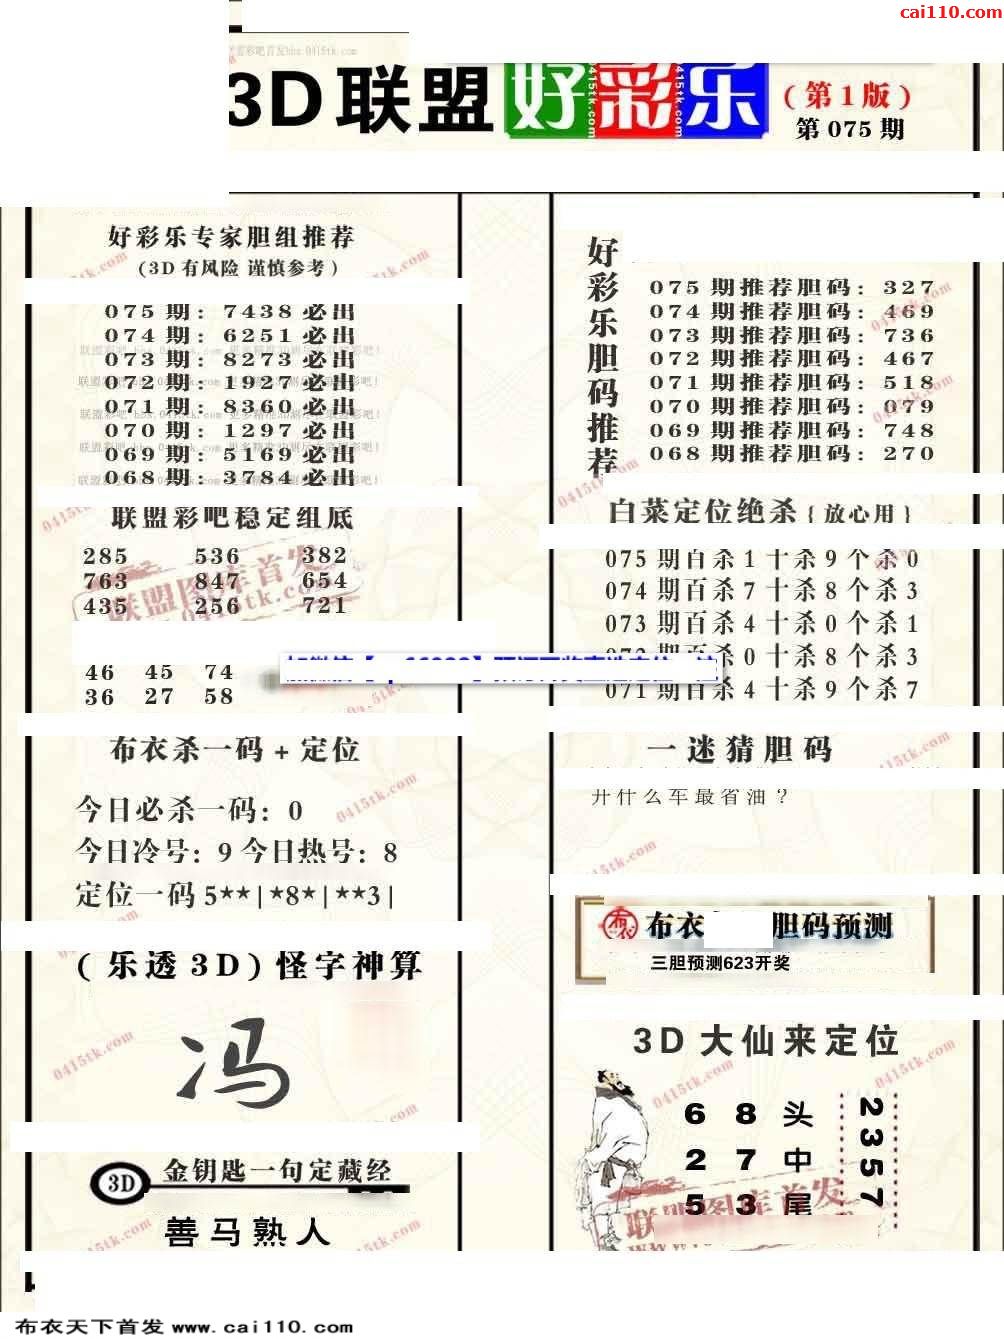 cai110.com
3D联盟好彩乐
(第1版)
第075期
好彩乐专家胆组推荐
(3D有风险 谨慎参考)
075期: 7438必出
074期: 6251必出
073期: 8273必出
072期: 1927必出
071期: 8360必出
070期: 1297必出
069期: 5169必出
068期: 3784必出
联盟彩吧稳定组底
285 536 382
763 847 654
435 256 721
46 45 74
36 27 58
布衣杀一码+定位
今日必杀一码: 0
今日冷号: 9 今日热号: 8
定位一码 5**|*8*|**3|
(乐透3D)怪字神算
冯
3D 金钥匙一句定藏经
善马熟人
好彩乐胆码推荐
075期推荐胆码: 327
074期推荐胆码: 469
073期推荐胆码: 736
072期推荐胆码: 467
071期推荐胆码: 518
070期推荐胆码: 079
069期推荐胆码: 748
068期推荐胆码: 270
白菜定位绝杀{放心用}
075期百杀1十杀9个杀0
074期百杀7十杀8个杀3
073期百杀4十杀0个杀1
杀0十杀8个杀3
071期百杀4十杀9个杀7
一迷猜胆码
开什么车最省油?
布衣 胆码预测
三胆预测623开奖
3D大仙来定位
6 8 头
2 7 中
5 3 尾
2357
联盟图库首发
0415tk.com
布衣天下首发 www.cai110.com